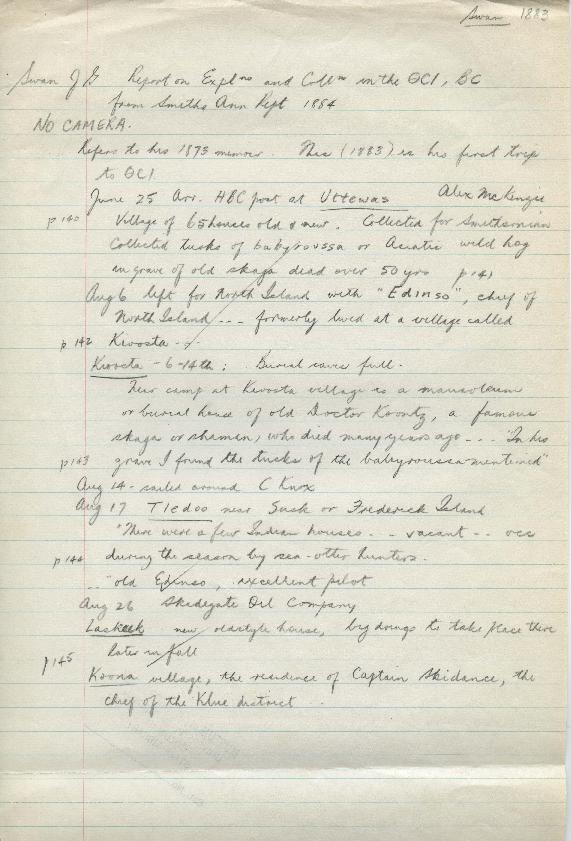 Swan 1883
Swan J G Report on Expl ns and Coll ns in the QCI, BC
from Smiths Ann Rept 1884
NO CAMERA.
Refers to his 1873 memoir. This (1883) is his first trip
to QCI
June 25 Arr. HBC post at Uttewas Alex McKenzie
p 140 Village of 65 houses old & new. Collected for Smithsonian
Collected tusks of babyroussa or Asiatic wild hog
in grave of old skaga dead over 50 yrs p 141
Aug 6 left for North Island with "Edinso", chief of
North Island --- formerly lived at a village called
p 142 Kioosta --
Kioosta - 6-14th; Burial caves full.
Near camp at Kioosta village is a mausoleum
or burial house of old Doctor Koontz, a famous
skaga or shaman, who died many years ago --- "In his
p 143 grave I found the tusks of the babyroussa mentioned"
Aug 14 - sailed around C Knox
Aug 17 Tledoo near Susk or Frederick Island
"There were a few Indian houses --- vacant -- occ
p 144 during the season by sea-otter hunters.
--"old Edinso, excellent pilot
Aug 26 Skidegate Oil Company
Laskeek new oldstyle house, big doings to take place there
later in fall
p 145
Koona village, the residence of Captain Skidance, the
chief of the Klue district ..